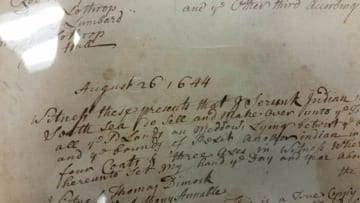 Lothrop
Lumbard
and yᵉ Other third According
Lothrop
August 26 1644
Witness these presents that I Serunk Indian
South Sea Do Sell and make over unto yᵉ
all yᵉ Land and Meddow Lying betwixt yᵉ
and yᵉ bounds of Another indian
four Coats & three axes in Witness Where
thereunto Set my hand yᵉ Day and year above
the
Thomas Dimock
Annable
is a True Copy